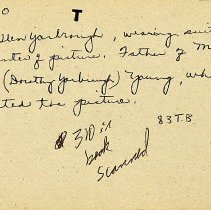 O
T
Glen Yarbrough, wearing suit
nter of picture. Father of M
(Dorothy Yarbrough) Young, wh
ted the picture.
310 in
book
scanned
83TB